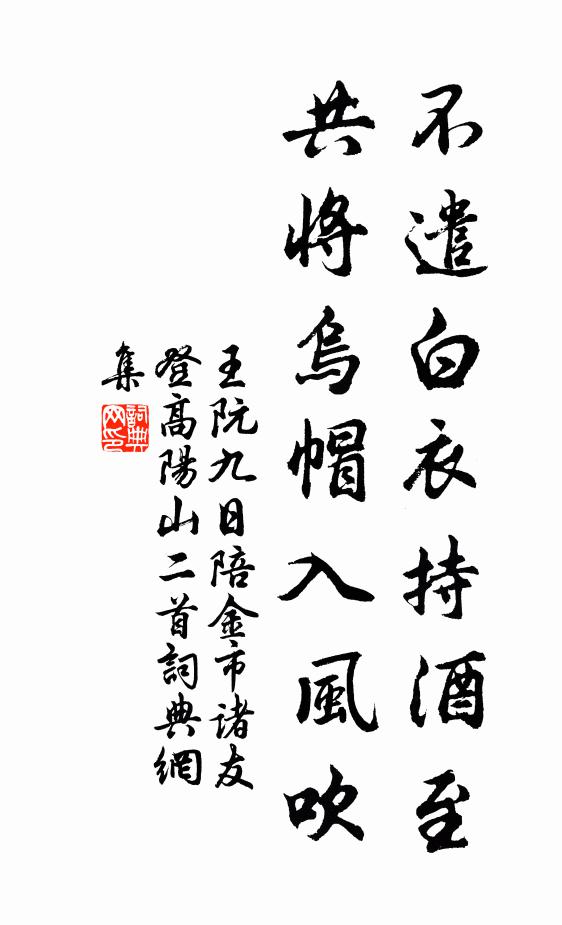 不遣白衣持酒至
共將烏帽入風吹
王阮九日陪金市諸友
登高陽山二首詞典網
集
詞典
网印